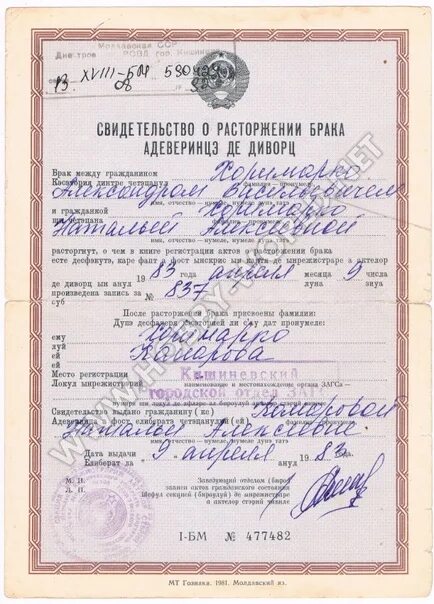 Молдавская ССР
Днестров РОВД гор. Кишинев
13 XVIII-БМ 590429
СВИДЕТЕЛЬСТВО О РАСТОРЖЕНИИ БРАКА
АДЕВЕРИНЦЭ ДЕ ДИВОРЦ
Брак между гражданином Хоримарко
Касэтория динтре четэцянул фамилия пронумеле
Александром Васильевичем
имя, отчество - нумеле, нумеле дупэ татэ
и гражданкой Хоримарко
ши четэцяна фамилия пронумеле
Натальей Алексеевной
имя, отчество - нумеле, нумеле дупэ татэ
расторгнут, о чем в книге регистрации актов о расторжении брака
есте десфэкутэ, каре фапт а фост ынскрис ын картя де ынрежистраре а актелор
де диворц ын анул 1983 апреля месяца 9 числа
произведена запись за № 837
суб
После расторжения брака присвоены фамилии:
Дупэ десфачеря кэсэторией ли с'ау дат пронумеле:
ему
луй
ей Комарова
ей
Место регистрации Кишиневский
Локул ынрежистрэрий наименование и местонахождение органа ЗАГСа
городской отдел
Свидетельство выдано гражданину (ке) Комаровой
Адеверинца а фост елибератэ четэцянулуй (ей)
Наталье Алексеевне
имя, отчество - нумеле, нумеле дупэ татэ
Дата выдачи 9 апреля 1983
Елиберат ла анул
М. П.
Л. П.
Заведующий отделом (бюро)
записи актов гражданского состояния
Шефул секцией (бироулуй) де ынрежистраре
а актелор стэрий чивиле
I-БМ № 477482
МТ Гознака. 1981. Молдавский яз.
WWW.HOBBY-WORLD.NET